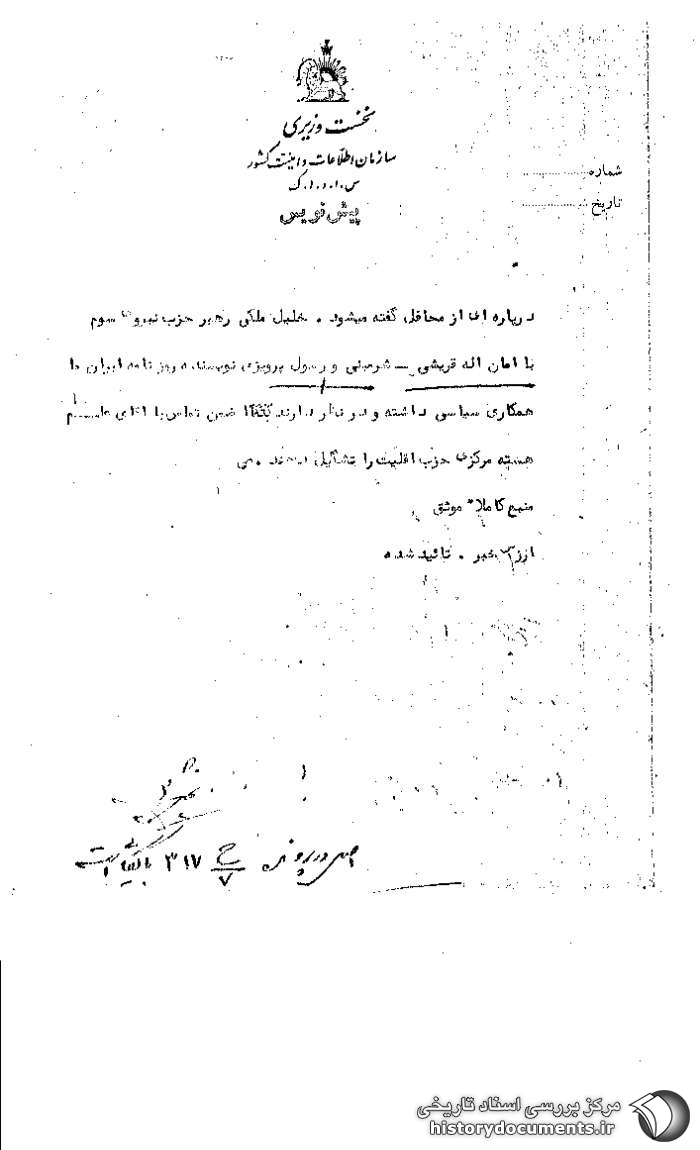 نخست وزیری
سازمان اطلاعات و امنیت کشور
س.ا.و.ا.ک
پیش نویس
شماره
تاریخ
درپاره از محافل گفته میشود . خلیل ملکی رهبر حزب نیروی سوم
با امان اله قریشی ــ شرمینی و رسول پرویزی نویسنده روزنامه ایران ما
همکاری سیاسی داشته و در نظر دارند ضمن تماس با اقای
هسته مرکزی حزب اقلیت را تشکیل دهند .
منبع کاملا" موثق
ارزش خبر . تائید شده
اصل در پرونده ح/۷ ۳۱۷
مرکز بررسی اسناد تاریخی
historydocuments.ir